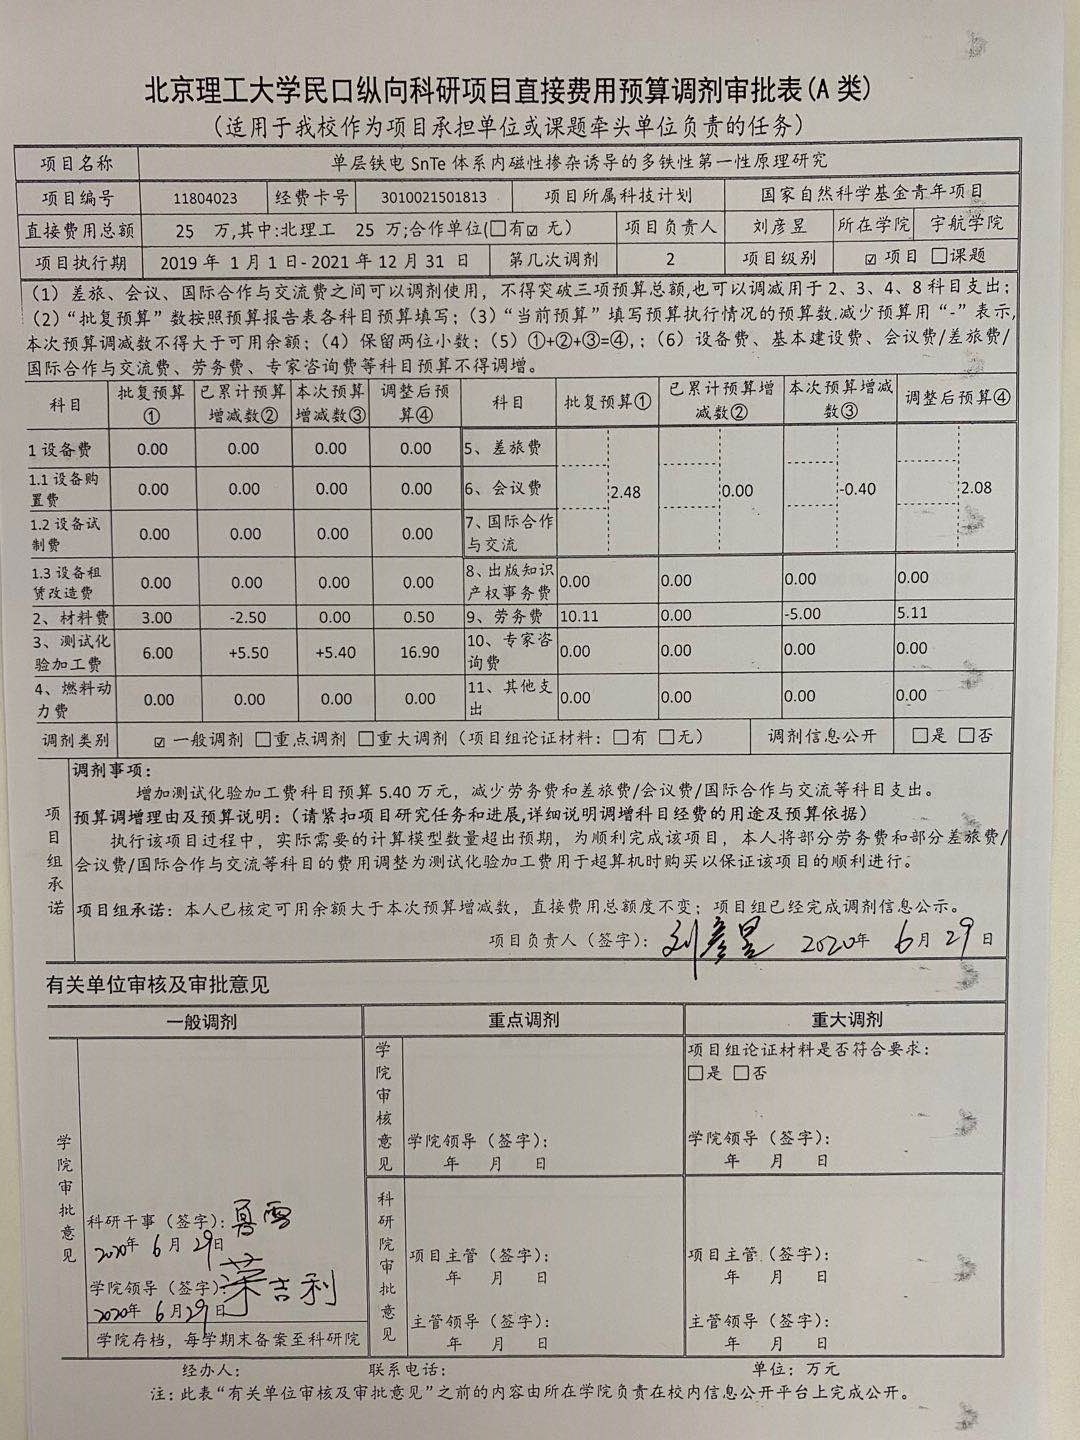 北京理工大学民口纵向科研项目直接费用预算调剂审批表(A 类)
(适用于我校作为项目承担单位或课题牵头单位负责的任务)
项目名称 单层铁电 SnTe 体系内磁性掺杂诱导的多铁性第一性原理研究
项目编号 11804023 经费卡号 3010021501813 项目所属科技计划 国家自然科学基金青年项目
直接费用总额 25 万,其中:北理工 25 万;合作单位(□有☑无) 项目负责人 刘彦昱 所在学院 宇航学院
项目执行期 2019 年 1 月 1 日- 2021 年 12 月 31 日 第几次调剂 2 项目级别 ☑ 项目 □课题
(1)差旅、会议、国际合作与交流费之间可以调剂使用，不得突破三项预算总额,也可以调减用于 2、3、4、8 科目支出;
(2)“批复预算”数按照预算报告表各科目预算填写;(3)“当前预算”填写预算执行情况的预算数.减少预算用“-”表示,
本次预算调减数不得大于可用余额;(4)保留两位小数;(5)①+②+③=④,;(6)设备费、基本建设费、会议费/差旅费/
国际合作与交流费、劳务费、专家咨询费等科目预算不得调增。
科目 批复预算① 已累计预算增减数② 本次预算增减数③ 调整后预算④ 科目 批复预算① 已累计预算增减数② 本次预算增减数③ 调整后预算④
1 设备费 0.00 0.00 0.00 0.00 5、差旅费
1.1 设备购置费 0.00 0.00 0.00 0.00 6、会议费 2.48 0.00 -0.40 2.08
1.2 设备试制费 0.00 0.00 0.00 0.00 7、国际合作与交流
1.3 设备租赁改造费 0.00 0.00 0.00 0.00 8、出版知识产权事务费 0.00 0.00 0.00 0.00
2、材料费 3.00 -2.50 0.00 0.50 9、劳务费 10.11 0.00 -5.00 5.11
3、测试化验加工费 6.00 +5.50 +5.40 16.90 10、专家咨询费 0.00 0.00 0.00 0.00
4、燃料动力费 0.00 0.00 0.00 0.00 11、其他支出 0.00 0.00 0.00 0.00
调剂类别 ☑ 一般调剂 □重点调剂 □重大调剂(项目组论证材料:□有 □无) 调剂信息公开 □是 □否
项目组承诺
调剂事项:
增加测试化验加工费科目预算 5.40 万元，减少劳务费和差旅费/会议费/国际合作与交流等科目支出。
预算调增理由及预算说明:(请紧扣项目研究任务和进展,详细说明调增科目经费的用途及预算依据)
执行该项目过程中，实际需要的计算模型数量超出预期，为顺利完成该项目，本人将部分劳务费和部分差旅费/
会议费/国际合作与交流等科目的费用调整为测试化验加工费用于超算机时购买以保证该项目的顺利进行。
项目组承诺:本人已核定可用余额大于本次预算增减数，直接费用总额度不变;项目组已经完成调剂信息公示。
项目负责人(签字): 刘彦昱 2020年 6月 29日
有关单位审核及审批意见
一般调剂 重点调剂 重大调剂
学院审批意见
科研干事(签字):
2020年 6月 29日
学院领导(签字): 荣吉利
2020年 6月29日
学院存档，每学期末备案至科研院
学院审核意见
学院领导(签字):
年 月 日
科研院审批意见
项目主管(签字):
年 月 日
主管领导(签字):
年 月 日
项目组论证材料是否符合要求:
□是 □否
学院领导(签字):
年 月 日
项目主管(签字):
年 月 日
主管领导(签字):
年 月 日
经办人: 联系电话: 单位:万元
注:此表“有关单位审核及审批意见”之前的内容由所在学院负责在校内信息公开平台上完成公开。